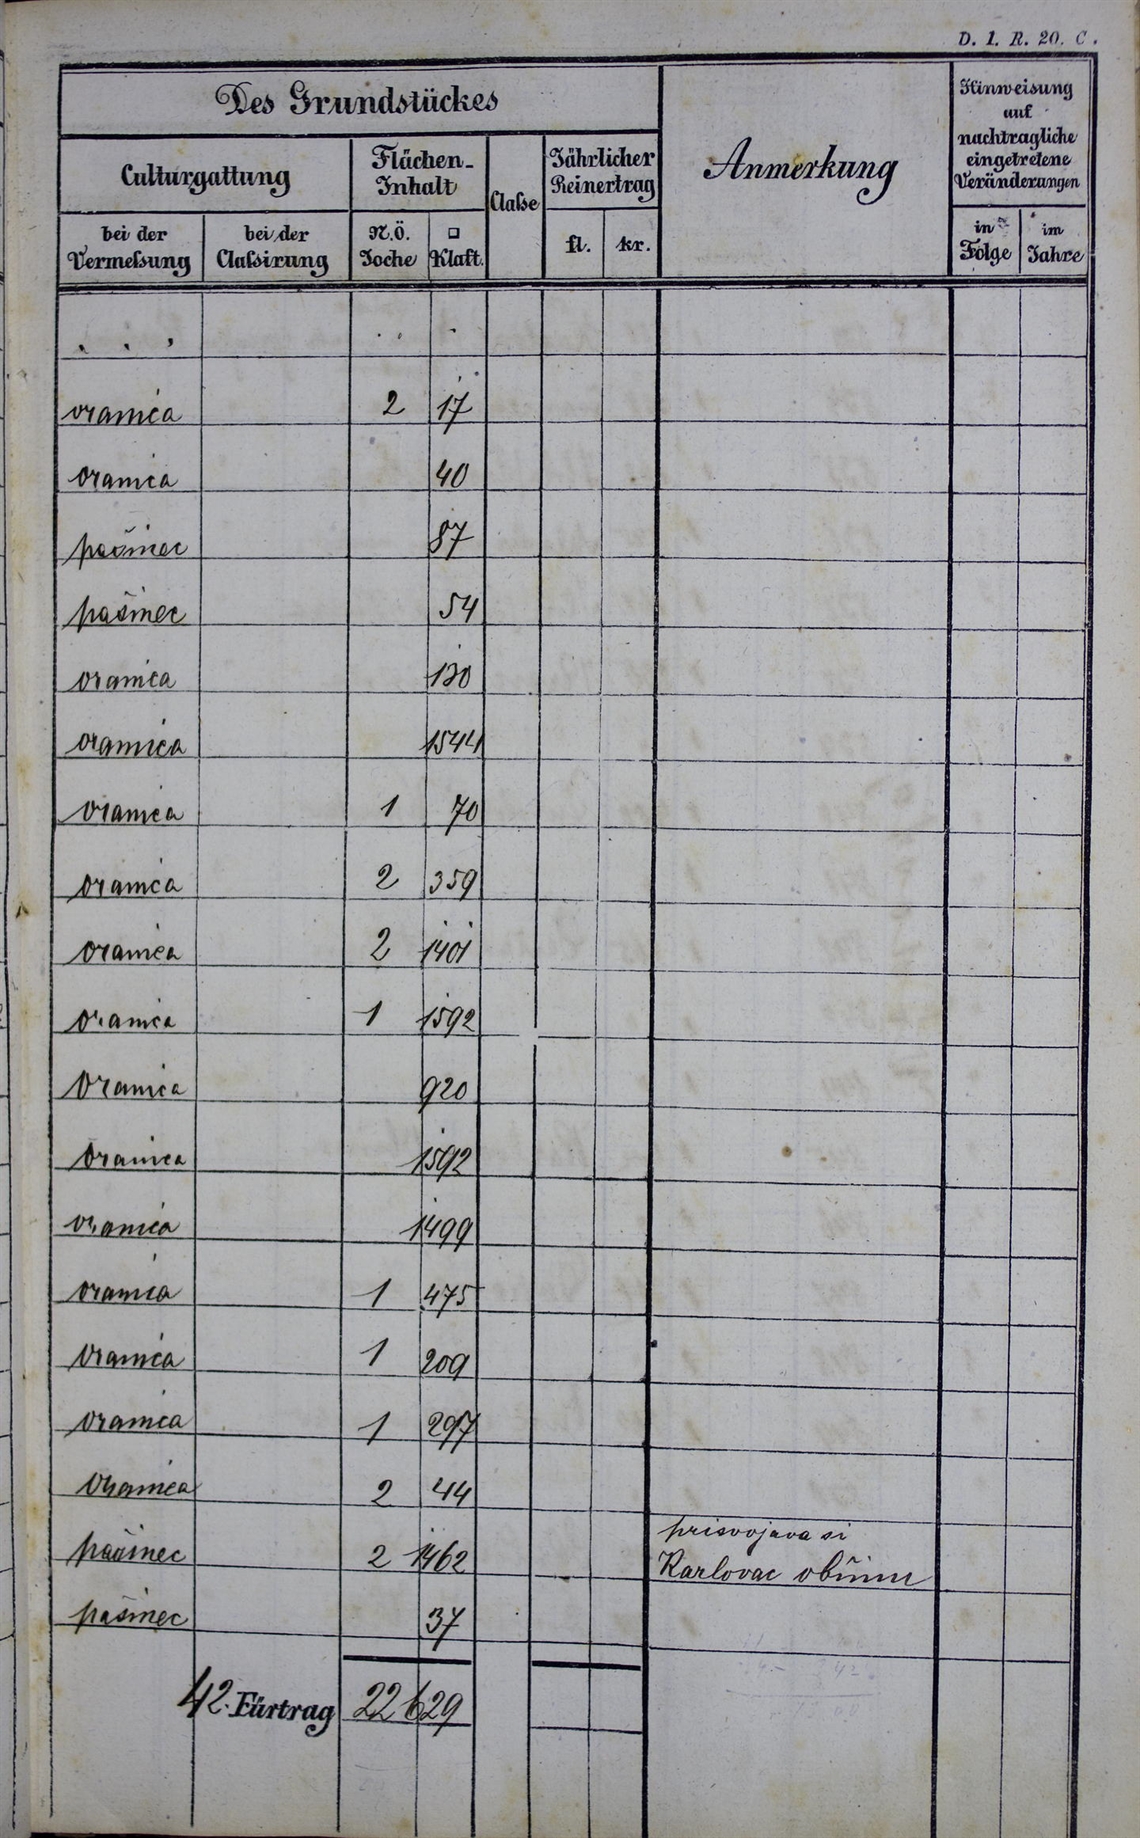 D. 1. R. 20. C.
Des Grundstückes
Anmerkung
Hinweisung
auf
nachtragliche
eingetretene
Veränderungen
Culturgattung
Flächen-
Inhalt
Claſse
Jährlicher
Reinertrag
bei der
Vermeſsung
bei der
Claſsirung
N.Ö.
Joche
□
Klaft.
fl.
kr.
in
Folge
im
Jahre
oranica 2 17
oranica 40
pašinec 87
pašinec 54
oranica 130
oranica 1544
oranica 1 70
oranica 2 359
oranica 2 1401
oranica 1 1592
oranica 920
oranica 1592
oranica 1499
oranica 1 475
oranica 1 209
oranica 1 297
oranica 2 44
prisvojava si
pašinec 2 1462 Karlovac
pašinec 37
42. Fürtrag 22 629